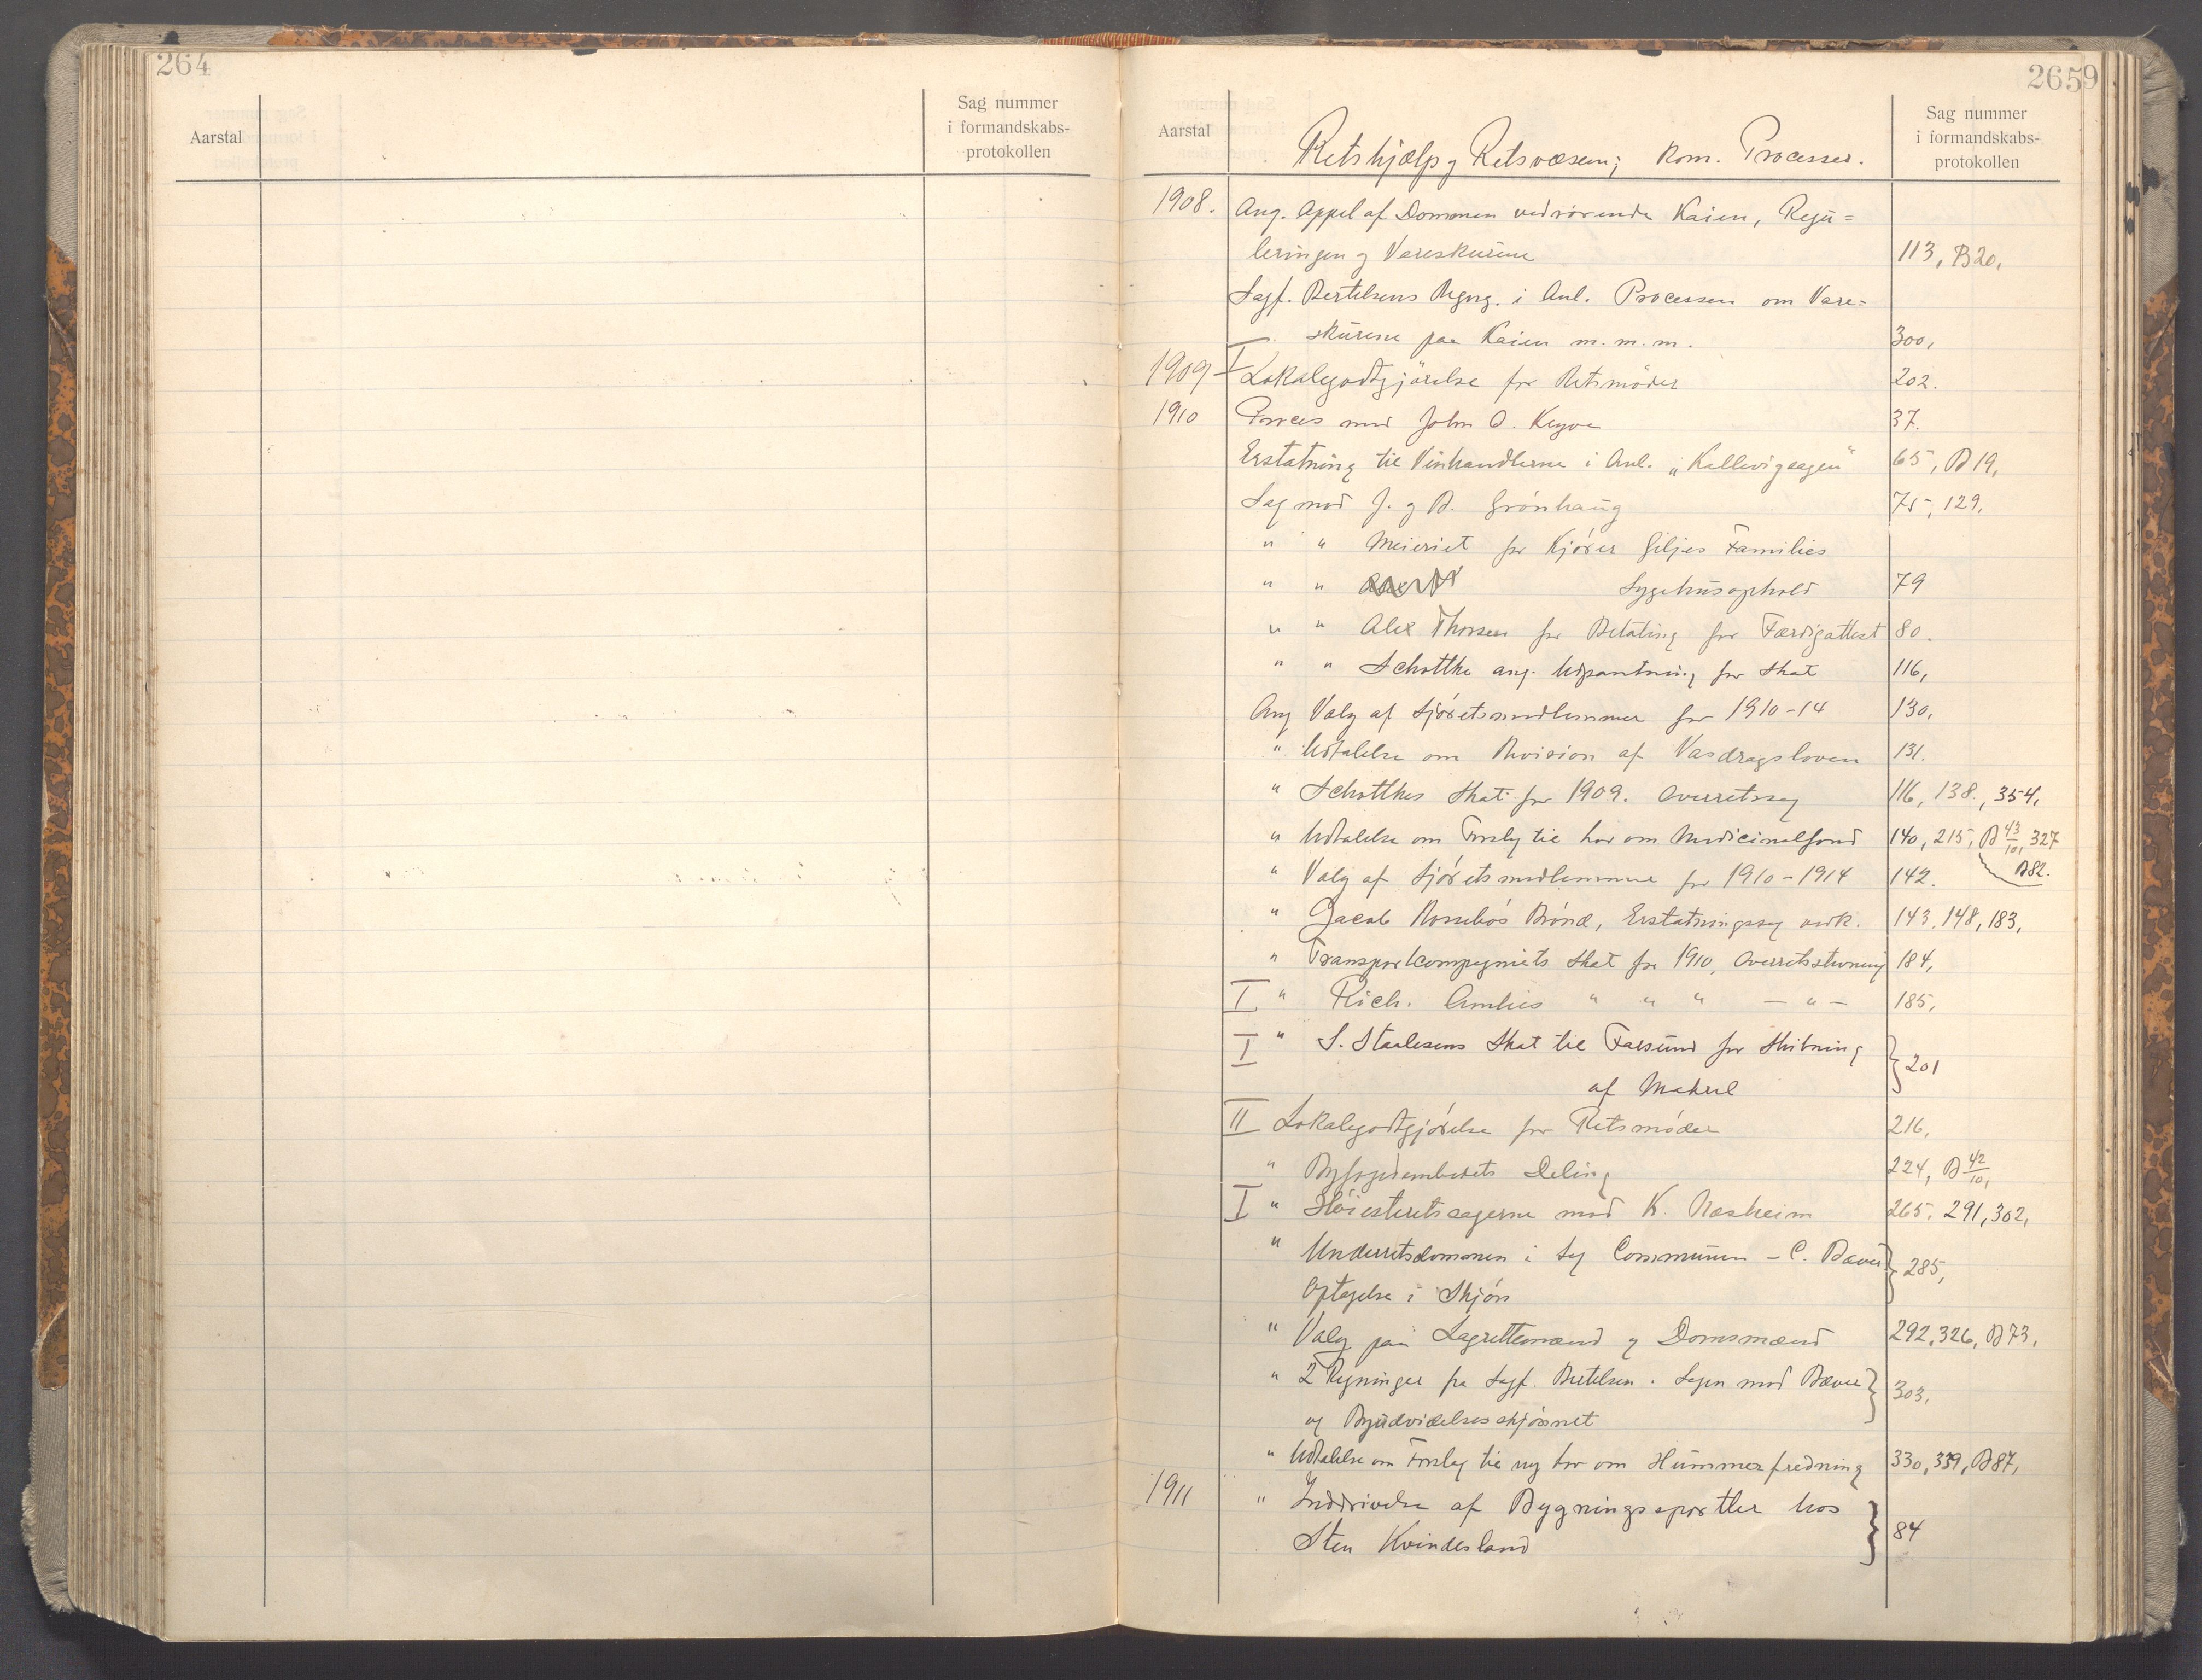 264
Aarstal
Sag nummer
i formandskabs-
protokollen
2659
Aarstal
Retshjælp og Retsvæsen; Kom. Processer.
Sag nummer
i formandskabs-
protokollen
1908. Ang. Appel af Dommen vedrørende Kaien, Regu=
leringen og Vareskurene 113, B20,
Sagf. Bertelsens Regng. i Anl. Processen om Vare=
skurene paa Kaien m.m.m. 300,
1909 I Lokalegodtgjörelse for Retsmöder 202.
1910 Proces med John O. 37.
Erstatning til Vinhandlerne i Anl. „Kallevigsagen" 65, B19,
Sag mod J. og B. Grönhaug 75, 129,
" " Meieriet for Kjörer Giljes Families
" " Sygehusophold 79
" " Alex Thorsen for Betaling for Færdigattest 80.
" " Schottke ang. Udpantning for Skat 116,
Ang Valg af Sjöretsmedlemmer for 1910-14 130,
" Udtalelse om Revision af Vasdragsloven 131.
" Schottkes Skat for 1909. Overretssag 116, 138., 354,
" Udtalelse om Forslag til Lov om Medicinalfond 140, 215, B 43/10, 327
B82.
" Valg af Sjöretsmedlemmer for 1910-1914 142.
" Jacob Rossebös Brönd, Erstatningssag vedk. 143, 148, 183,
" Transportkompagniets Skat for 1910, Overretsstevning 184,
I " Rich. Amlies " " " — " — 185,
I " S. Staalesens Skat til Farsund for Skibning
af Makrel } 201
II Lokalegodtgjörelse for Retsmöder 216,
" Byfogedembedets Deling 224, B 42/10,
I " Höiesteretssagerne mod K. Næsheim 265, 291, 302,
" Underretsdommen i Sag Communen - C. Bævers
Optagelse i Skjön } 285,
" Valg paa Lagrettemænd og Domsmænd 292, 326, B73,
" 2 Regninger fra Sagf. Bertelsen. Sagen mod Bæver
og Byudvidelsesskjönnet } 303,
" Udtalelse om Forslag til ny Lov om Hummerfredning 330, 339, B87,
1911 " Inddrivelse af Bygningssportler hos
Sten Kvindesland } 84